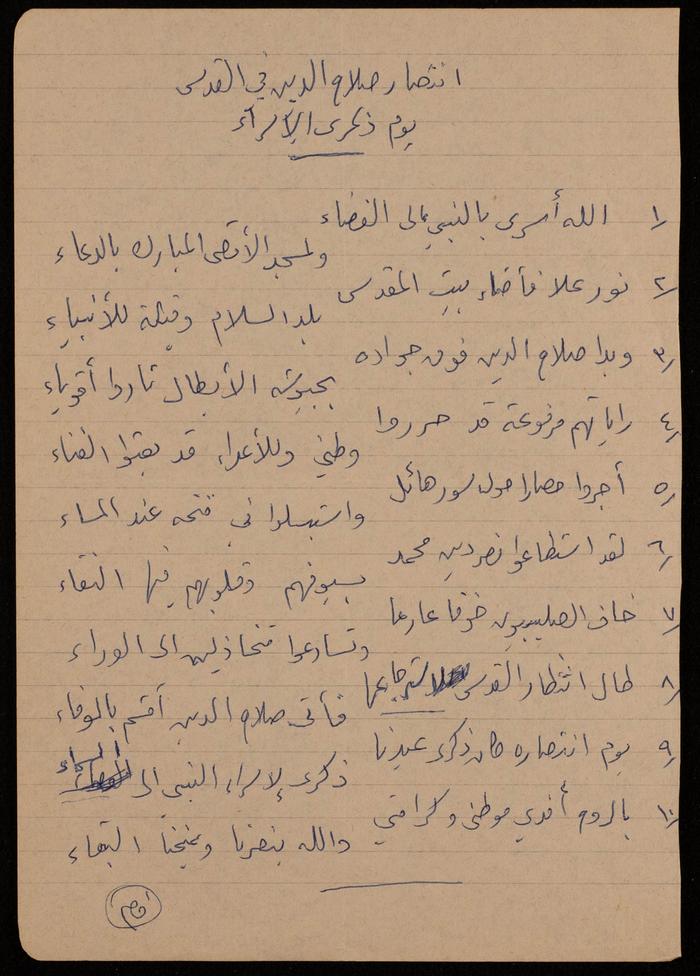 انتصار صلاح الدين في القدس
يوم ذكرى الإسراء
١/ الله أسرى بالنبي إلى الفضاء
ولمسجد الأقصى المبارك بالدعاء
٢/ نور علا فأضاء بيت المقدس
بلد السلام وقبلة للأنبياء
٣/ وبدا صلاح الدين فوق جواده
بجيوشه الأبطال ثاروا أقوياء
٤/ راياتهم مرفوعة قد حرروا
وطني وللأعداء قد بعثوا الفناء
٥/ أجروا حصارا حول سور هائل
واستبسلوا في فتحه عند المساء
٦/ لقد استطاعوا نصر دين محمد
بسيوفهم وقلوبهم فيها النقاء
٧/ خاف الصليبيون خوفا عارما
وتسارعوا متخاذلين الى الوراء
٨/ طال انتظار القدس لاسترجاعها
فأتى صلاح الدين أقسم بالوفاء
٩/ يوم انتصاره كان ذكرى عيدنا
ذكرى لإسراء النبي الى السماء
١٠/ بالروح أفدي موطني وكرامتي
والله ينصرنا ويمنحنا البقاء